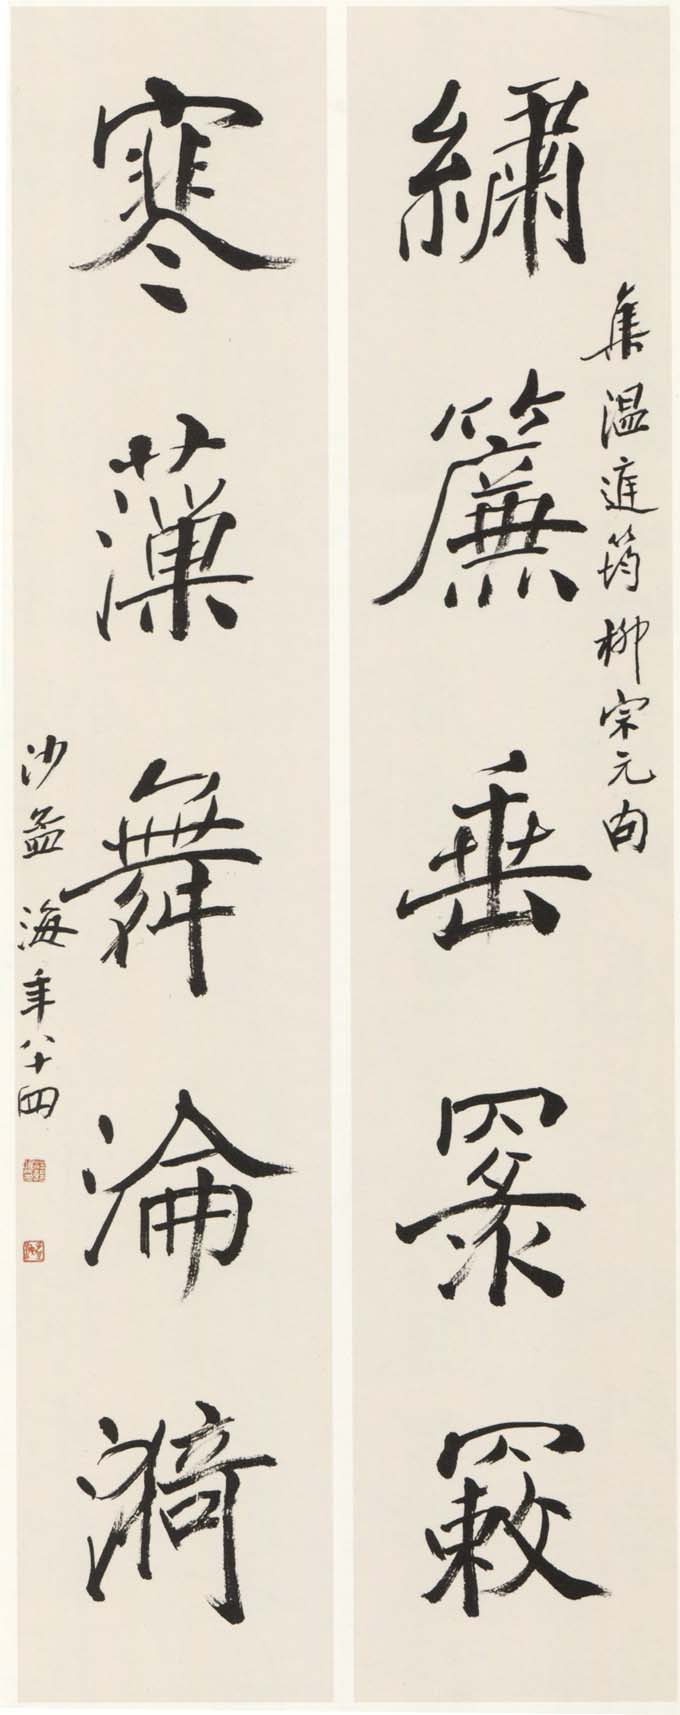 繡簾垂
集温庭筠柳宗元句
寒藻舞淪漪
沙孟海年八十四